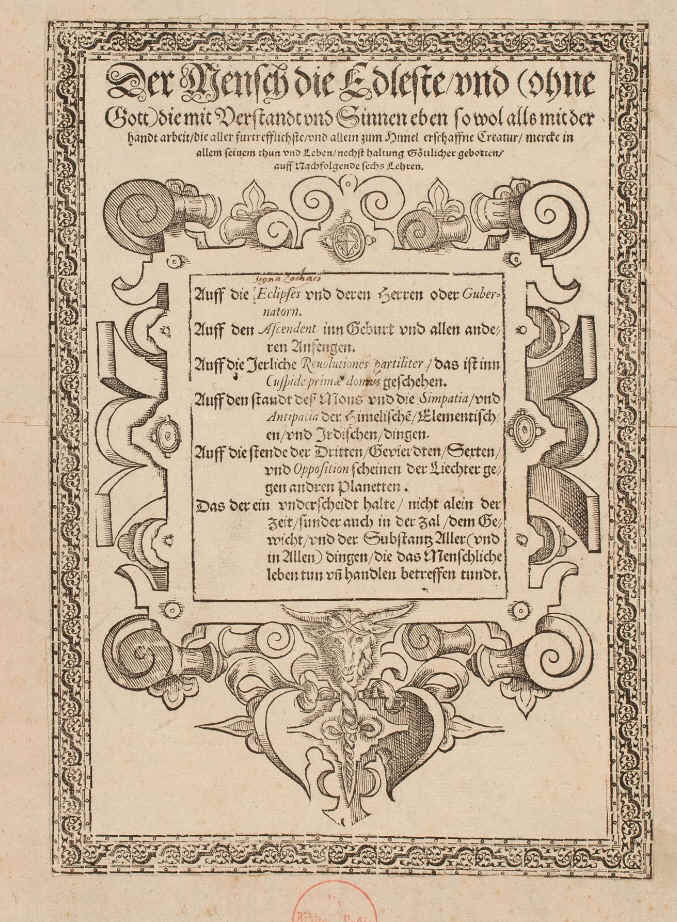 Der Mensch die Edleste/vnd (ohne
Gott) die mit Verstandt vnd Sinnen eben so wol alls mit der
handt arbeit/die aller furtrefflichste/vnd allein zum Himel erschaffne Creatur/ mercke in
allem seinem thun vnd Leben/nechst haltung Göttlicher gebotten/
auff Nachfolgende sechs Lehren.
Auff die Eclipses vnd deren Herren oder Guber-
natorn.
Auff den Ascendent inn Geburt vnd allen ande/
ren Anfengen.
Auff die Jerliche Reuolutiones partiliter/das ist inn
Cuspide primæ domus geschehen.
Auff den standt deß Mons vnd die Simpatia/vnd
Antipatia der Himelischē/Elementisch/
en/vnd Irdischen/dingen.
Auff die stende der Dritten/Gevierdten/Sexten/
vnd Opposition scheinen der Liechter ge/
gen andren Planetten.
Das der ein vnderscheidt halte/ nicht alein der
Zeit/sunder auch in der Zal/dem Ge/
wicht/vnd der Substantz Aller(vnd
in Allen) dingen/die das Menschliche
leben tun vn̄ handlen betreffen tundt.